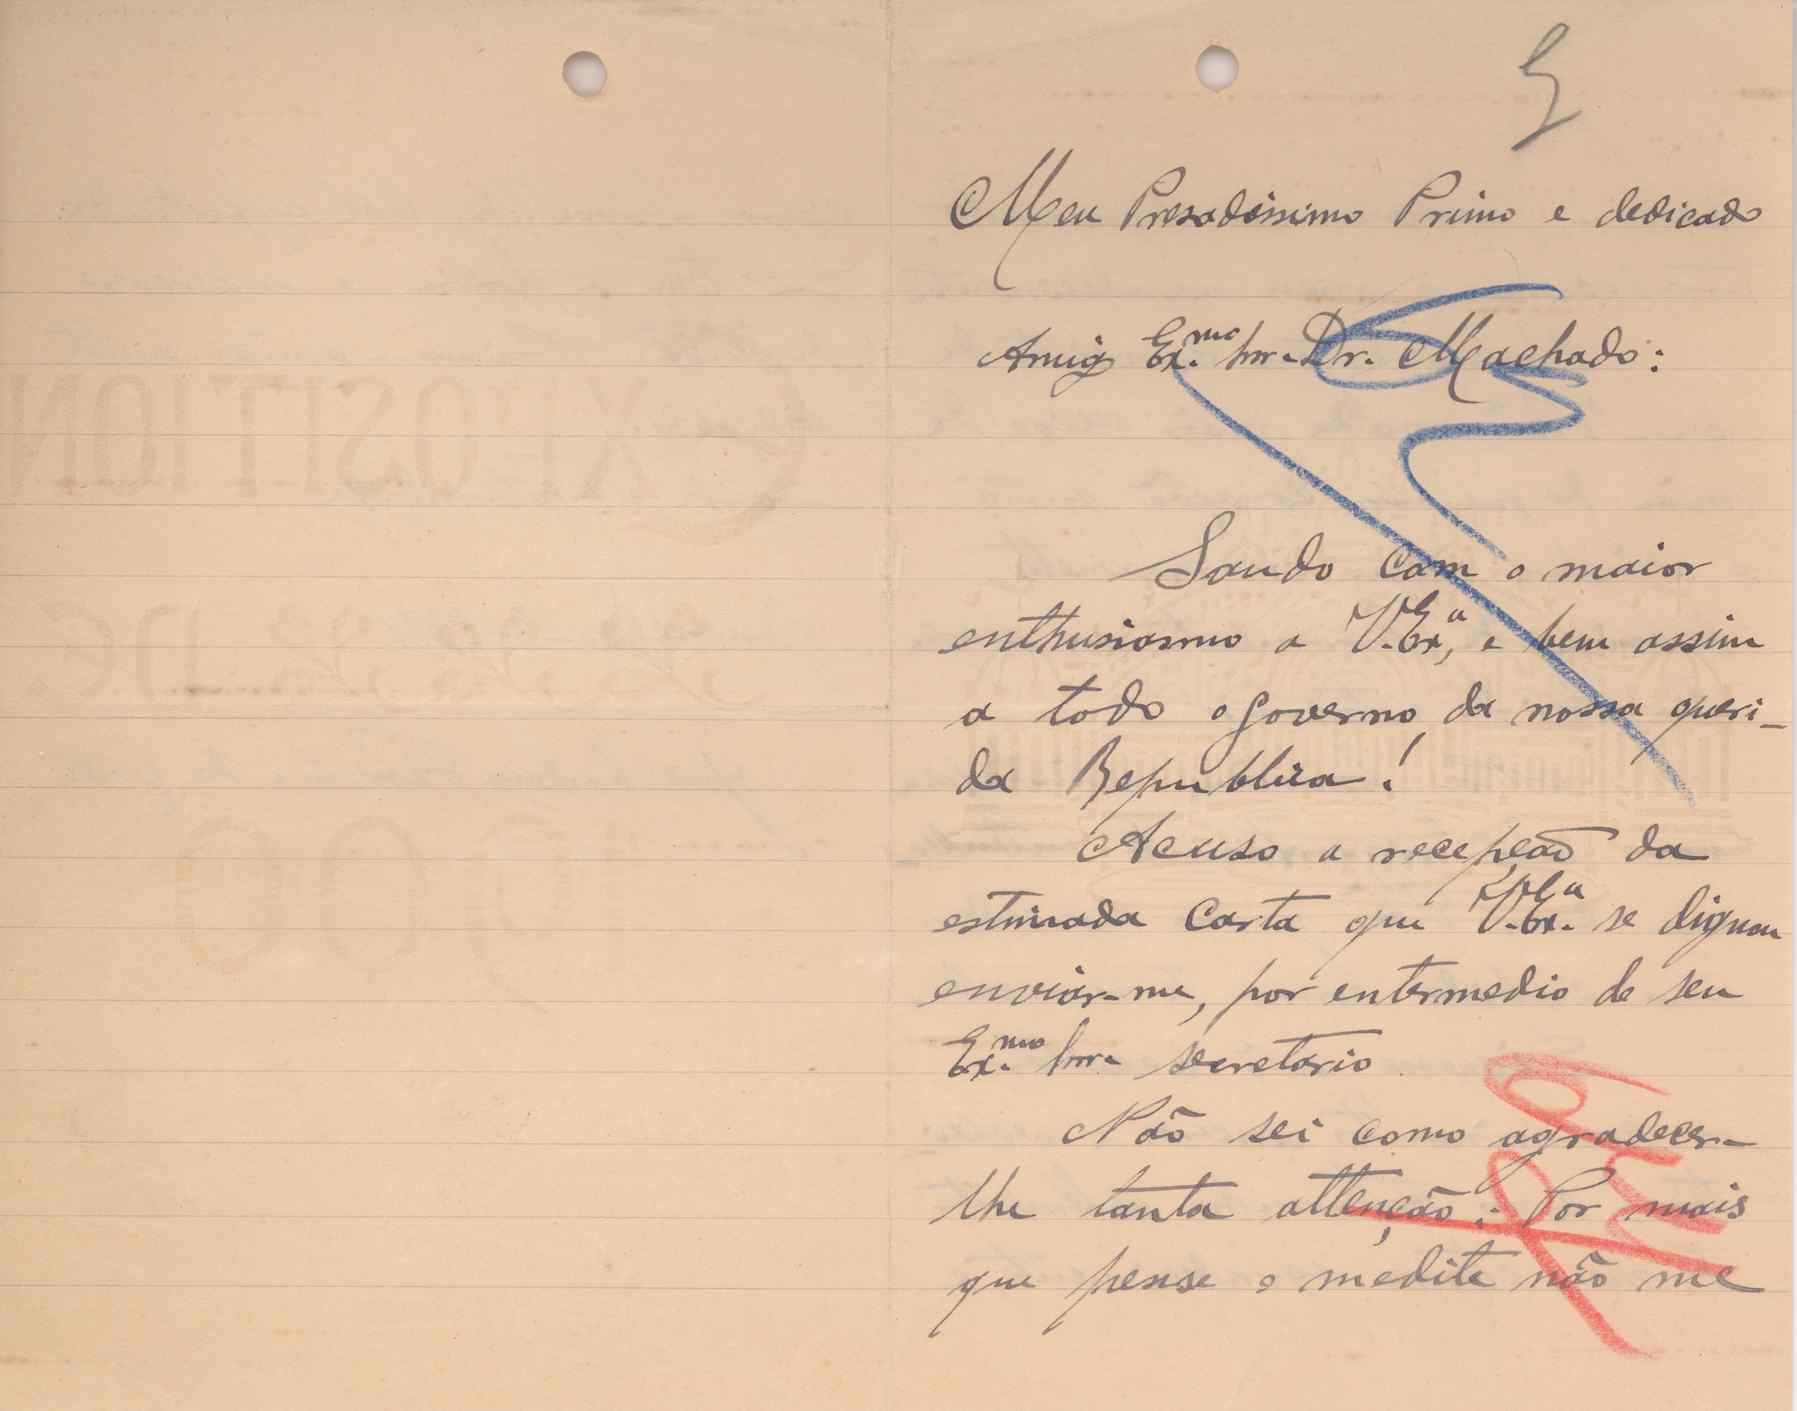 Meu Presadissimo Primo e dedicado
Amigo Ex.mo Snr. Dr. Machado:
Saudo com o maior
enthusiasmo a V. Ex.a, e bem assim
a todo o governo da nossa queri-
da Republica!
Acuso a recepção da
estimada carta que V. Ex.a se dignou
enviar-me, por entermedio de seu
Ex.mo Snr. secretario
Não sei como agradecer-
lhe tanta attenção: Por mais
que pense e medite não me
EXPOSITION
1900